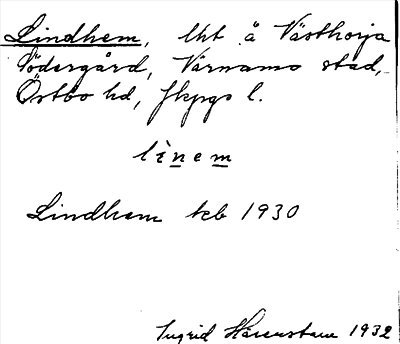 Lindhem, lht å Västhorja
Södergård, Värnamo stad,
Östbo hd, Jkpgs l.
lìnem
Lindhem kcb 1930
Ingrid Hasenstam 1932